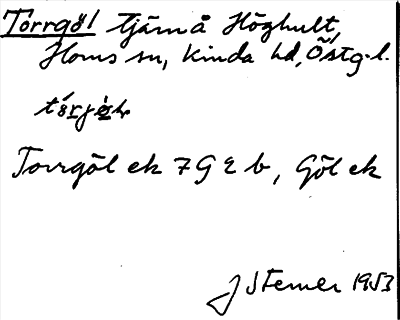 Torrgöl tjärn å Höghult,
Horns sn, Kinda hd, Östg. l.
Torrgöl ek 7 G 2 b, Göl ek
J Stemer 1953